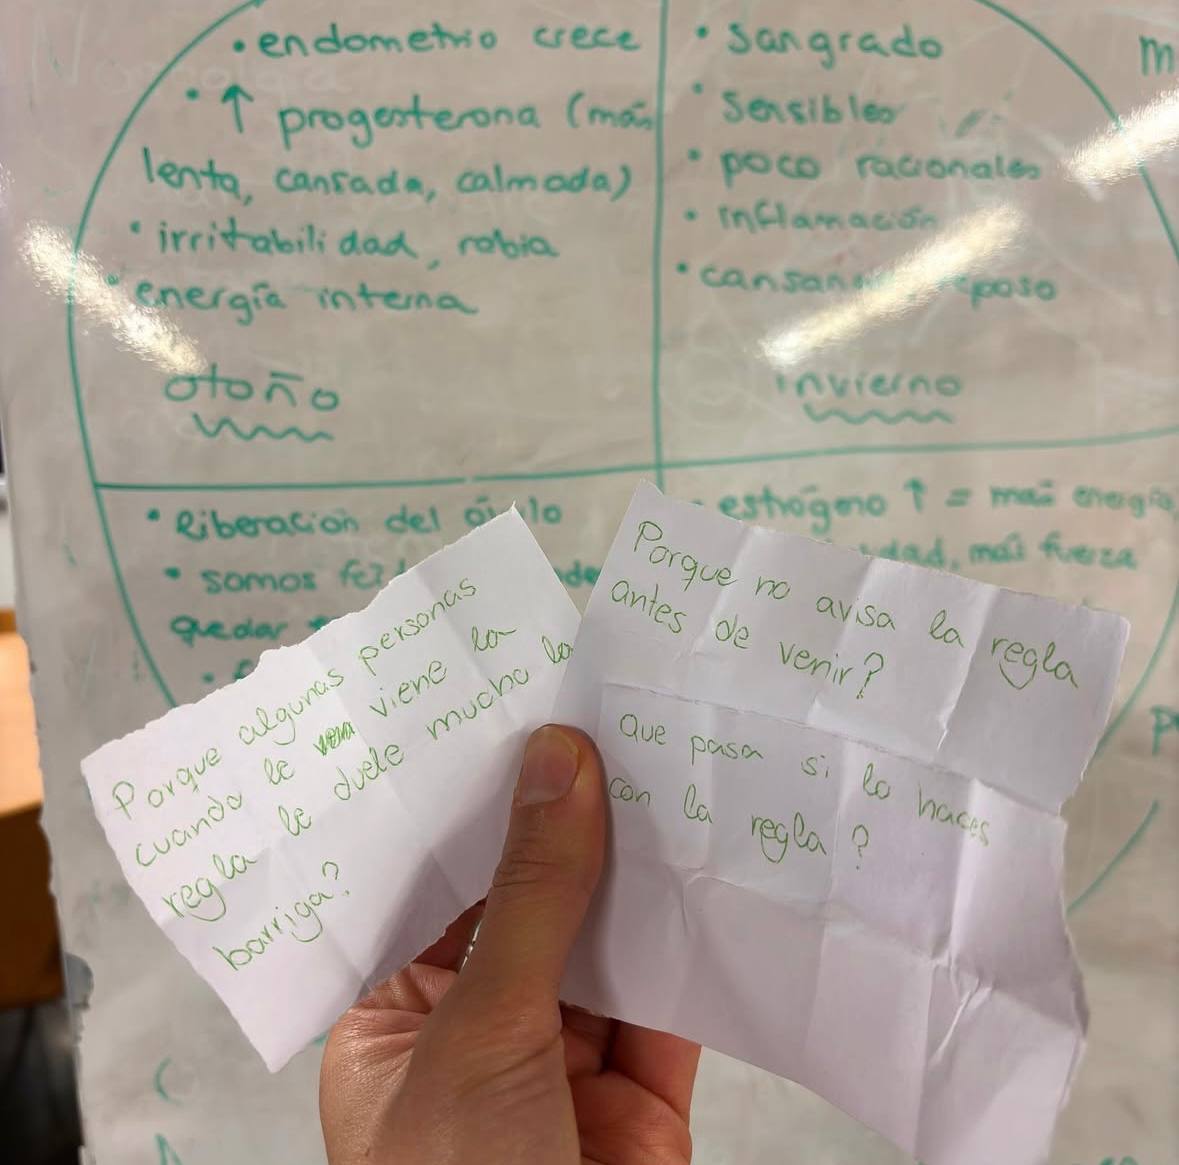 • endometrio crece
• ↑ progesterona (más
lenta, cansada, calmada)
• irritabilidad, rabia
• energía interna
otoño
• Sangrado
• Sensibles
• poco racionales
• inflamación
• poso
invierno
• Liberación del óvulo
• somos
quedar
• estrógeno ↑ = más energía,
más fuerza
Porque algunas personas
cuando le viene la
regla le duele mucho la
barriga?
Porque no avisa la regla
antes de venir?
Que pasa si lo haces
con la regla?